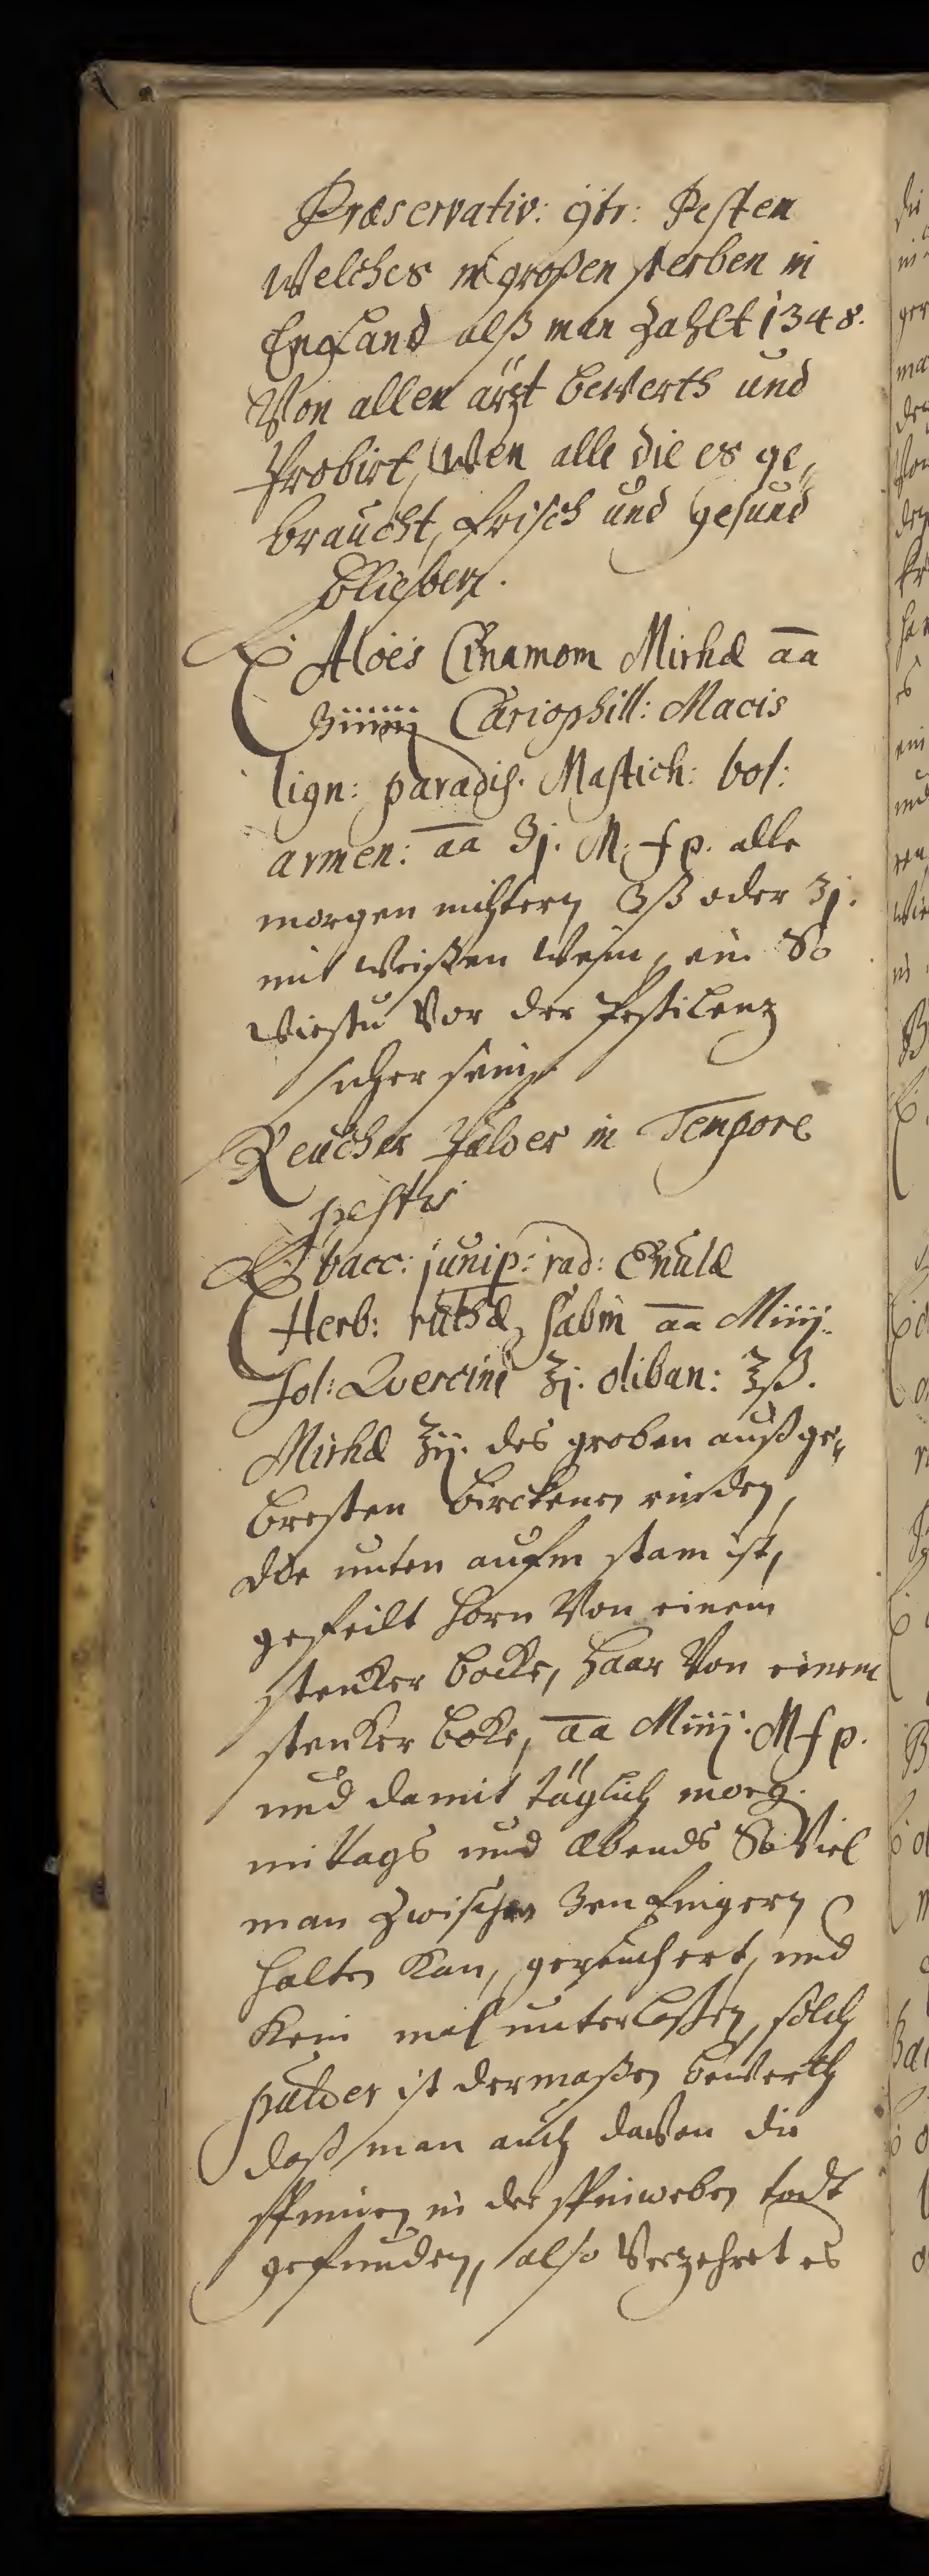 Præservativ: ꝯtr: Pesten
Welches in großen sterben in
Engeland alß man Zahlt 1348.
Von allen ärzt bewerth und
Probirt, Wen alle die es ge„
braucht, frisch und gesund
blieben.
℞ Aloes Cinamom Mirhæ āā
ʒiiiiij Cariophill: Macis
lign: paradis. Mastich: bol:
armen: āā ʒj. M. f p. alle
morgen nüchtern ʒß oder ʒj.
mit weißen Wein, ein So
wirstu Vor der Pestilenz
sicher sein
Reucher Pulver in Tempore
pestis
℞ bacc: junip: rad: Enulæ
Herb: ruthæ, sabin āā Miiij.
fol: Quercini ℥j. oliban: ℥ß.
Mirhæ ℥ij. des groben außge„
borsten birckenen rinden,
die unten aufm stam ist,
gefeilt horn Von einem
stencker bocke, Haar Von einem
stencker boke, āā Miiij. M f p.
und damit täglich morg.
mittags und abends So Viel
man Zwischen 3en fingern
halten Kan, gereuchert, und
Kein mal unterlaßen, solch
pulver ist dermaßen bewerth
daß man auch davon die
spinnen in der spinweben todt
gefunden, also Verzehret es